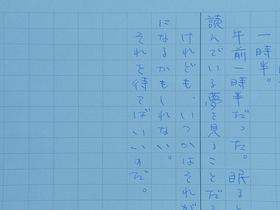 一時半。
午前一時半だった。眠ると
読んでいる夢を見ることだろ
けれども、いつかはそれが
になるかもしれない。
それを待てばいいのだ。